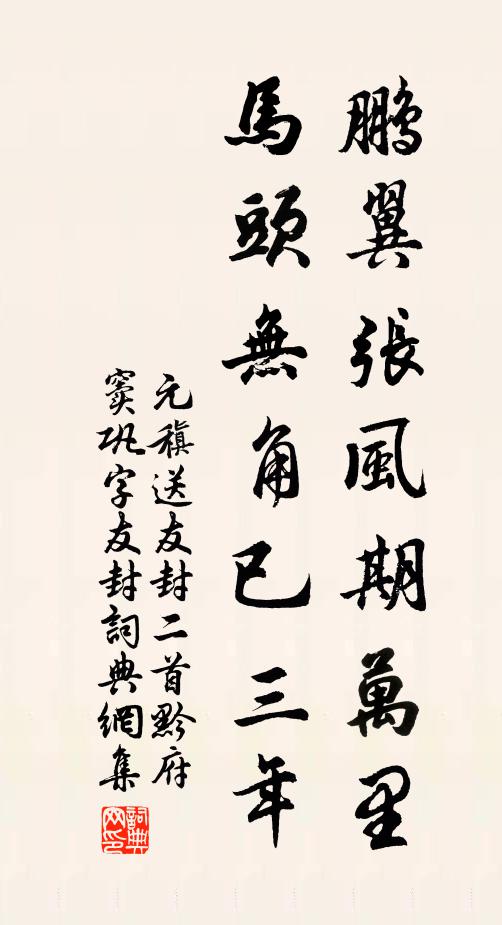 鵬翼張風期萬里
馬頭無角已三年
元稹送友封二首黔府
窦巩字友封詞典網集
詞典网印